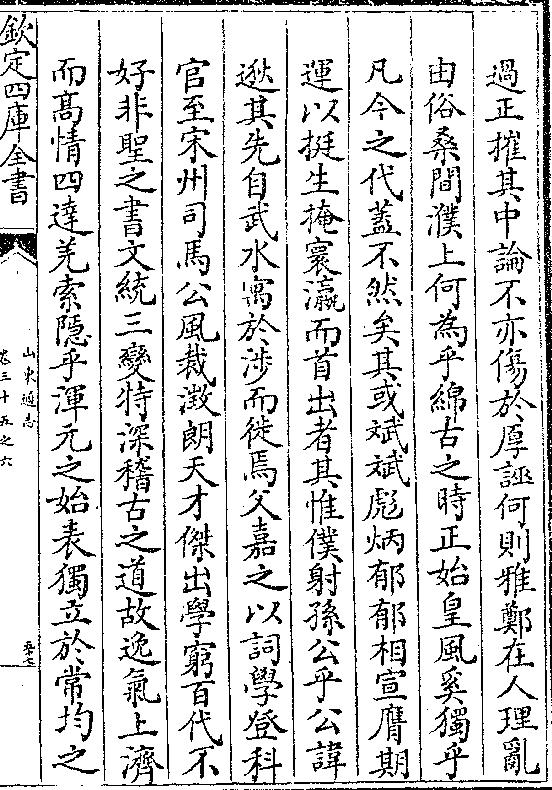 過正摧其中論不亦傷於厚誣何則雅鄭在人理亂
由俗桑間濮上何為乎綿古之時正始皇風奚獨乎
凡今之代蓋不然矣其或斌斌彪炳郁郁相宣膺期
運以挺生掩寰瀛而首出者其惟僕射孫公乎公諱
逖其先自武水寓於渉而徙焉父嘉之以詞學登科
官至宋州司馬公風裁澂朗天才傑出學窮百代不
好非聖之書文統三變特深稽古之道故逸氣上濟
而高情四達羌索隱乎渾元之始表獨立於常均之
欽定四庫全書
山東通志
卷三十五之六